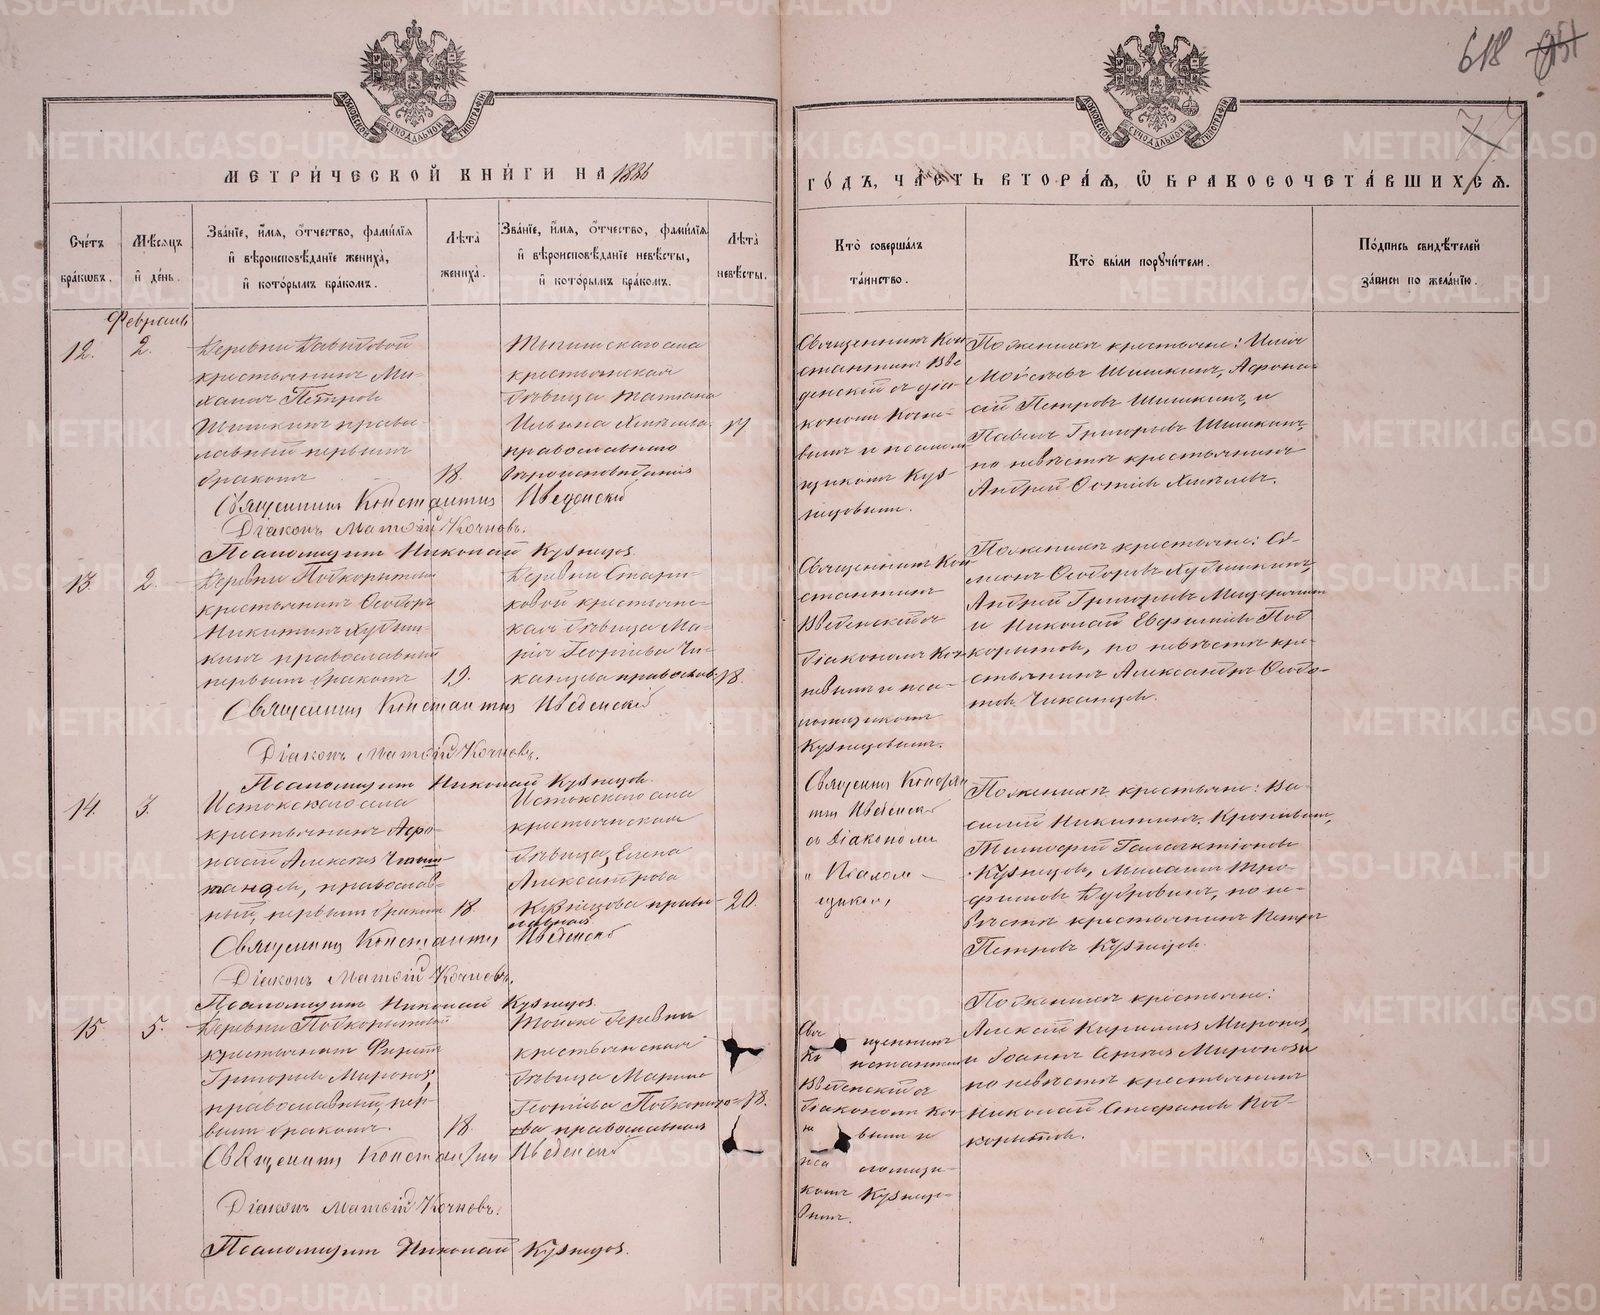 618
МОСКОВСКОЙ СѴНОДАЛЬНОЙ ТИПОГРАФІИ
МОСКОВСКОЙ СѴНОДАЛЬНОЙ ТИПОГРАФІИ
МЕТРИ́ЧЕСКОЙ КНИ́ГИ НА 1886
ГО́ДЪ, ЧА́СТЬ ВТОРА́Я, Ѡ БРАКОСОЧЕТА́ВШИХСЯ.
Сче́тъ бра́ковъ.
Мѣ́сяцъ и҆ де́нь.
Зва́нїе, и҆́мя, ѻ҆́тчество, фами́лїя и҆ вѣроисповѣ́данїе жениха̀, и҆ кото́рымъ бра́комъ.
Лѣ́та жениха̀.
Зва́нїе, и҆́мя, ѻ҆́тчество, фами́лїя и҆ вѣроисповѣ́данїе невѣ́сты, и҆ кото́рымъ бра́комъ.
Лѣ́та невѣ́сты.
Кто̀ соверша́лъ та́инство.
Кто̀ бы́ли пору́чи́тели.
По́дпись свидѣ́телей за́писи по жела́нїю.
Февраль
12.
2.
Деревни Давыдовой
крестьянинъ Ми-
хаилъ Петровъ
Шишкинъ право-
славный первымъ
бракомъ
18.
крестьянская
дѣвица Татіана
Ильина
православнаго
вѣроисповѣданія
17
Священникъ Кон
стантинъ Вве
денскій съ діа
кономъ Кочне-
вымъ и псалом
щикомъ Куз-
нецовымъ.
По женихѣ крестьяне: Илія
Моисеевъ Шишкинъ, Афона-
сій Петровъ Шишкинъ, и
Павелъ Григорьевъ Шишкинъ,
по невѣстѣ крестьянинъ
Андрей
Священникъ Константинъ Введенскій
Діаконъ Матѳій Кочневъ.
Псаломщикъ Николай Кузнецов
13.
2.
Деревни
крестьянинъ Ѳеодоръ
Никитинъ
православный
первымъ бракомъ
19.
Деревни Стари-
ковой крестьянс-
кая дѣвица Ма-
рія Георгіева Чи-
канцева православ.
18.
Священникъ Кон
стантинъ
Введенскій съ
діакономъ Коч
невымъ и пса-
ломщикомъ
Кузнецовымъ.
По женихѣ крестьяне:
Андрей Григорьевъ
и Николай Под
корытов, по невѣстѣ кре-
стьянинъ Александръ Ѳеодо-
тов Чиканцев.
Священникъ Константинъ Введенскій
Діаконъ Матѳій Кочневъ.
Псаломщикъ Николай Кузнецов.
14.
3.
Истокскаго села
крестьянинъ Афо-
насій Алексѣев
православ-
ный, первымъ бракомъ
18.
Истокскаго села
крестьянская
дѣвица, Елена
Александрова
Кузнецова право-
славная
20.
Священникъ Констан
тин Введенскій
съ Діакономъ
и Псалом-
щиком,
По женихѣ крестьяне: Ва-
силій Никитинъ
Тимофей Галактіонов
Кузнецов, Михаилъ Тро-
фимов Дубровинъ, по не-
вѣстѣ крестьянинъ Петръ
Петровъ Кузнецов.
Священникъ Константинъ Введенскій
Діаконъ Матѳій Кочневъ.
Псаломщикъ Николай Кузнецов
15
5.
Деревни Подкорытовой
крестьянинъ
Григорьев Миронов,
православный, пер-
вымъ бракомъ.
18.
Тойже деревни
крестьянская
дѣвица Марина
Георгіева Подкорыто-
ва православная
18.
Свя щенникъ
Ко нстантинъ
Введенскій съ
діакономъ Коч
не вымъ и
пса ломщи-
комъ Кузнецо-
вымъ.
По женихѣ крестьяне:
Алексѣй Кириллов Миронов,
и Іоаннъ Миронов и
по невѣстѣ крестьянинъ
Николай Стефанов Под-
корытов.
Священникъ Константинъ Введенскій
Діаконъ Матѳій Кочневъ.
Псаломщикъ Николай Кузнецов.
METRIKI.GASO-URAL.RU